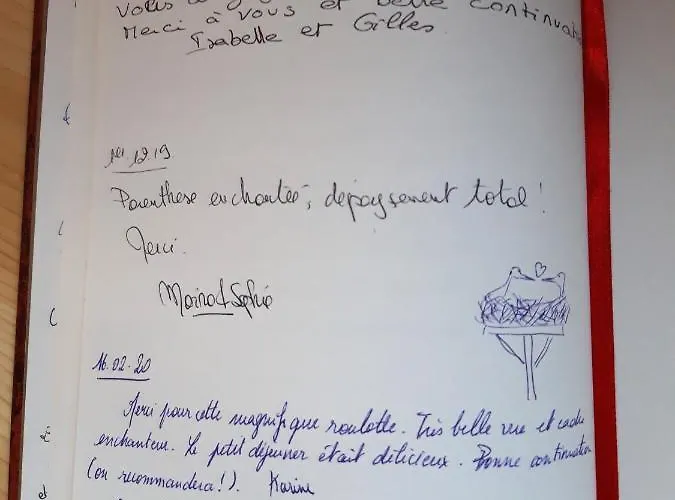 Vous
Merci à vous et belle continuation
Isabelle et Gilles.
1er.12.19
Parenthèse enchantée, dépaysement total !
Merci.
Sophie
16.02.20
Merci pour cette magnifique roulotte. Très belle vue et cadre
enchanteur. Le petit déjeuner était délicieux. Bonne continuation
(on recommandera !). Karine